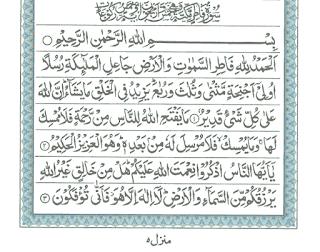 بِسْمِ اللهِ الرَّحْمٰنِ الرَّحِيْمِ
اَلْحَمْدُ لِلّٰهِ فَاطِرِ السَّمٰوٰتِ وَالْاَرْضِ جَاعِلِ الْمَلٰٓئِكَةِ رُسُلًا
اُولِيْٓ اَجْنِحَةٍ مَّثْنٰى وَثُلٰثَ وَرُبٰعَ يَزِيْدُ فِي الْخَلْقِ مَا يَشَآءُ اِنَّ اللهَ
عَلٰى كُلِّ شَيْءٍ قَدِيْرٌ ۱ مَا يَفْتَحِ اللهُ لِلنَّاسِ مِنْ رَّحْمَةٍ فَلَا مُمْسِكَ
لَهَا وَمَا يُمْسِكْ فَلَا مُرْسِلَ لَهٗ مِنْۢ بَعْدِهٖ وَهُوَ الْعَزِيْزُ الْحَكِيْمُ ۲
يٰٓاَيُّهَا النَّاسُ اذْكُرُوْا نِعْمَتَ اللهِ عَلَيْكُمْ هَلْ مِنْ خَالِقٍ غَيْرُ اللهِ
يَرْزُقُكُمْ مِّنَ السَّمَآءِ وَالْاَرْضِ لَآ اِلٰهَ اِلَّا هُوَ فَاَنّٰى تُؤْفَكُوْنَ ۳
منزل ۵